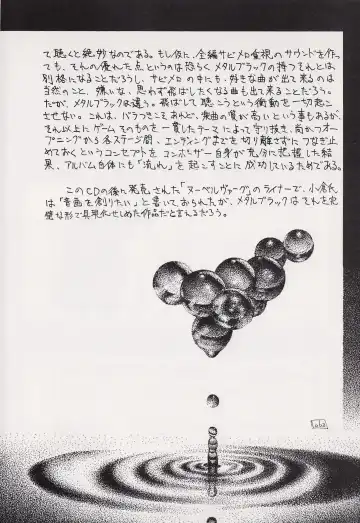 て聴くと絶妙なのである。もし仮に、全編サビメロ重視のサウンドを作っ
ても、それの優れた点というのは恐らくメタルブラックの持つそれとは
別格になることだろうし、サビメロの中にも、好きな曲が出て来るのは
当然のこと、嫌いな、思わず飛ばしたくなる曲も出て来ることだろう。
だが、メタルブラックは違う。飛ばして聴こうという衝動を一切起こ
させない。これは、バラつきこそあれど、楽曲の質が高いという事もあるが、
それ以上にゲームそのものを一貫したテーマによって守り抜き、尚かつオー
プニングから各ステージ間、エンディングまでを切り離さずにつなぎ止
めておくというコンセプトをコンポーザー自身が充分に把握した結
果、アルバム自体にも「流れ」を起こすことに成功しているためである。
このCDの後に発売された「ヌーベルヴァーグ」のライナーで、小倉氏
は「音画を創りたい」と書いておられたが、メタルブラックはそれを完
璧な形で具現化せしめた作品だと言えるだろう。